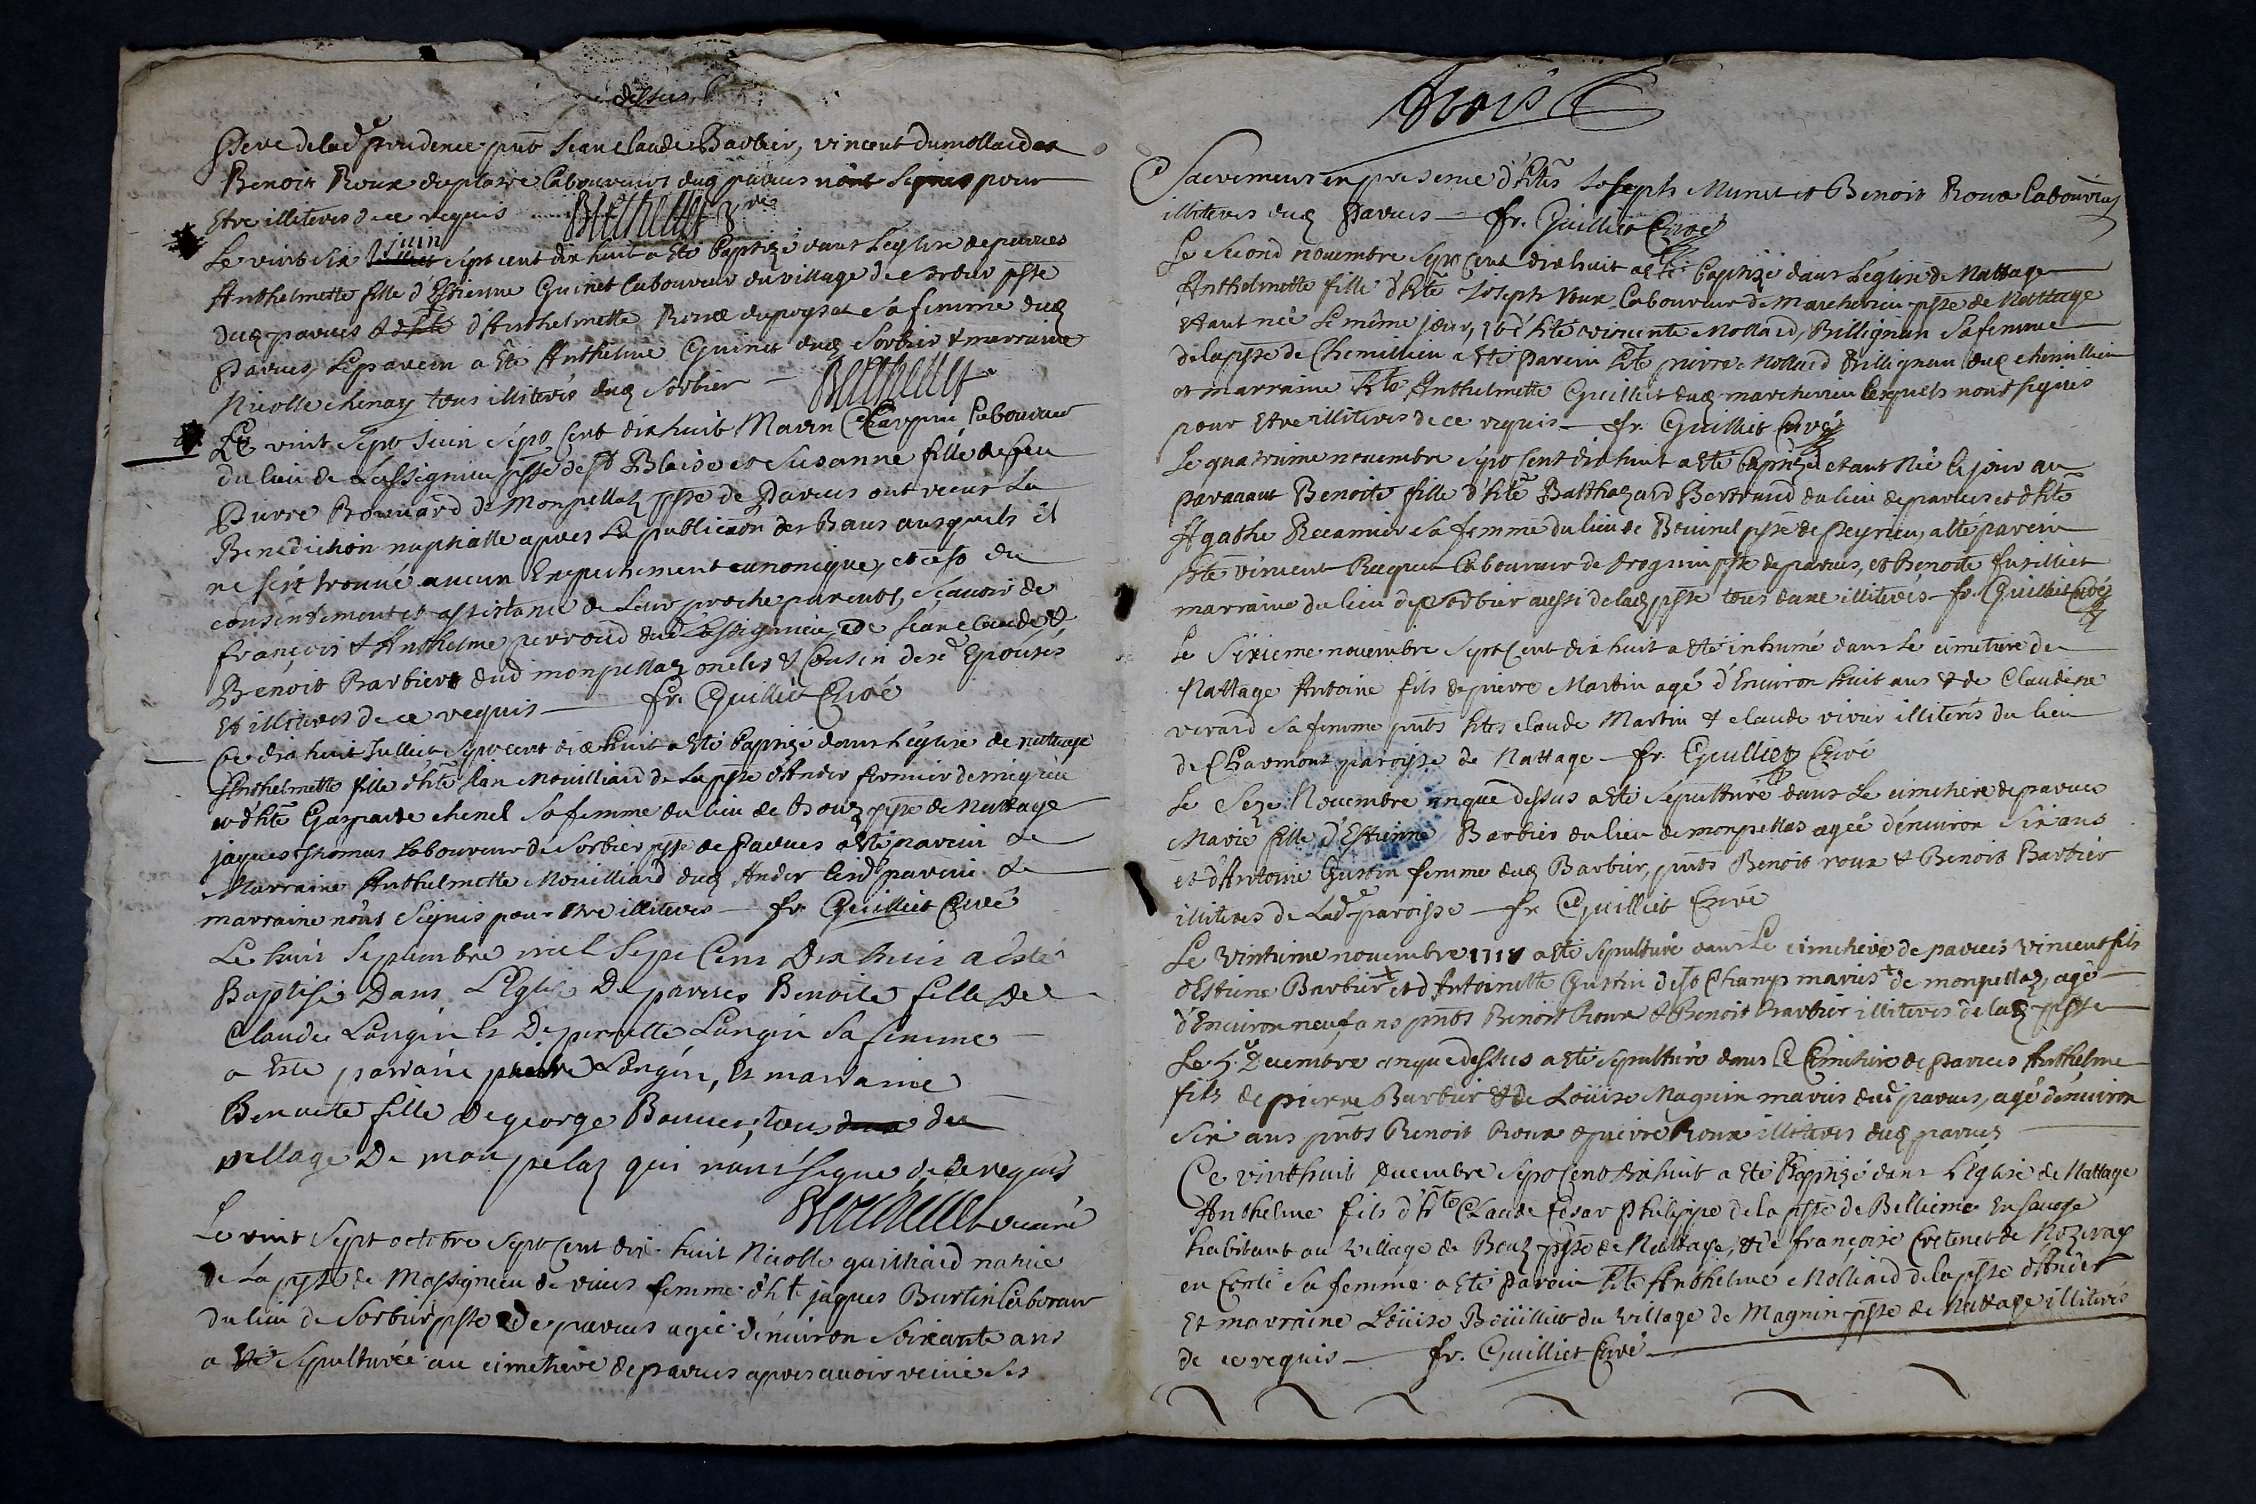 dessus
père de lad.e prudence pnts Jean Claude Barbier, vincent dumollard et
Benoit Roux du platre laboureurs dud parves nont signés pour
Etre illiteres de ce requis Berthellet vre
Le vint six juin sept cent dix huit a été baptizé dans l'église de parves
Anthelmette fille d'Estienne Guinet laboureur du village de sorbier psse
dud parves d'Anthelmette Roux sa femme dud
Parves, le parein a été Anthelme Guinet dud Sorbier & marraine
Nicolle chenay tous illiterés dud Sorbier — Berthellet
Le vint sept Juin sept cent dix huit Marin Charpine laboureur
du lieu de Lassignieu psse de St Blaise et Susanne fille de feu
Pierre Bonnard de Monpellaz psse de Parves ont receus la
Benediction nuptialle apres la publicaon des Bans ausquels il
ne s'est trouvé aucun Empechement canonique, et ce so du
consentement et assistance de leurs proche parents, sçavoir de
françois & Anthelme perroud dud Lassignieu, de Jean Claude &
Benoit Barbier dud monpellaz oncles & Cousin des.d Epousés
Et illiteres de ce requis — fr. Guilliet Curé
Ce dix huit Julliet sept cent dix huit a été baptizé dans l'église de nattage
Anthelmette fille d'hte Mouilliard de la psse d'Ander fermier de
et d'hte Gasparde chenel sa femme du lieu de Bouz psse de Nattage
jaques Thomas laboureur de Sorbier psse de Parves a été parein &
Marraine Anthelmette Mouilliard dud Ander lesd parein &
marraine nont signés pour etre illiteres — fr. Guilliet Curé
Le huit septembre mil sept Cent Dix huit a esté
Baptisé Dans L'Eglise De parves Benoite fille de
Claude Longin et De pernette Longin sa femme
a este parrain pierre Longin, Et marraine
Benoite fille de george Bonnier, tous du
village De mon pelaz qui nont signe de ce requis
Berthellet vicaire
Le vint sept octobre sept cent dix huit Nicolle guilliard native
de La psse de Massignieu de rives femme d'ht jaques Burtin laboureur
du lieu de Sorbier psse De parves agée d'environ soixante ans
a été sépulturée au cimetiere de parves apres avoir receu ses
trois
Sacremens en presence d'htes Joseph Munet et Benoit Roux laboureurs
illiteres dud Parves — fr. Guilliet Curé
Le second novembre sept cent dix huit a été baptizé dans l'église de Nattage
Anthelmette fille d'hte Joseph Roux laboureur de marcherieu psse de Nattage
etant née le même jour, & d'hte vincente Mollard, Billignan sa femme
de la psse de Chemillieu a été parein hte pierre Mollard Billignan dud chemillieu
et marraine hte Anthelmette Guilliet dud marcherieu lesquels nont signés
pour etre illiteres de ce requis — fr. Guilliet Curé
Le quatrieme novembre sept cent dix huit a été baptizé etant née le jour au
paravant Benoite fille d'hte Balthazard Bertrand du lieu de parves et d'hte
Agathe Recamier sa femme du lieu de Bouinel psse de Peyrieu, a été parein
hte vincent laboureur de psse de parves, et Benoite fusilliet
marraine du lieu de Sorbier aussi de lad psse tous deux illiterés — fr. Guilliet Curé
Le Sixieme novembre sept cent dix huit a été inhumé dans le cimetiere de
Nattage Antoine fils de pierre Martin agé d'Environ huit ans & de Claudine
verard sa femme pnts htes claude Martin & claude vivier illiterés du lieu
de Charmont paroisse de Nattage — fr. Guilliet Curé
Le Seze Novembre anque dessus a été sépulturé dans le cimetiere de parves
Marie fille d'Estienne Barbier du lieu de monpellas agée d'environ six ans
et d'Antoine Gustin femme dud Barbier, pnts Benoit roux & Benoit Barbier
illiteres de Lad.e paroisse — fr Guilliet Curé
Le Vintieme novembre 1718 a été sepulturé dans le cimetiere de parves vincent fils
d'Estiene Barbier et d'Antoinette Gustin de St Champ mariés de monpellaz, agé
d'Environ neuf ans pnts Benoit Roux & Benoit Barbier illiteres de lad psse
Le 5e Decembre anque dessus a été sepulturé dans le Cimetiere de parves Anthelme
fils de pierre Barbier & de Loüise Magnin mariés dud parves, agé d'environ
six ans pnts Benoit Roux & pierre Roux illiteres dud parves
Ce vint huit decembre sept cent dix huit a été Baptizé dans L'Eglise de Nattage
Anthelme fils d'hte Claude César Philippe de la psse de Bellieme En Savoye
habitant au village de Bouz psse de Nattage, & de françoise Cretinet de
en sa femme a été Parein hte Anthelme Molliard de la psse d'Ander
Et marraine Loüise Boüilliet du village de Magnin psse de Nattage illiterés
de ce requis — fr. Guilliet Curé